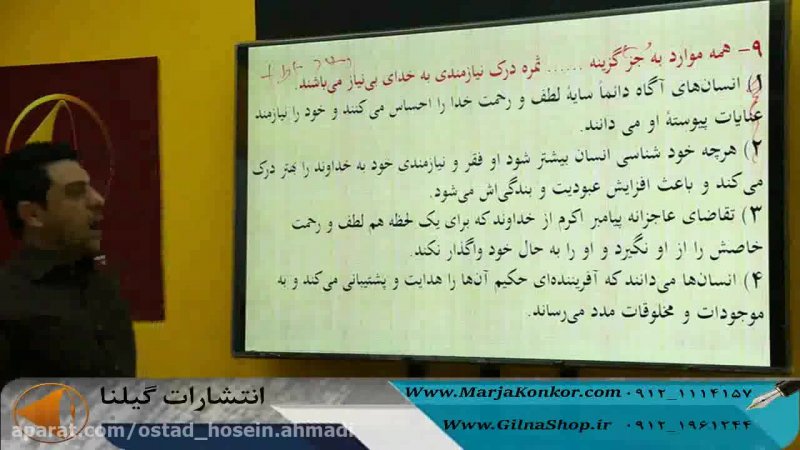 ۹- همه موارد به جز گزینه ...... ثمره درک نیازمندی به خدای بی‌نیاز می‌باشند.
۱) انسان‌های آگاه دائماً سایهٔ لطف و رحمت خدا را احساس می‌کنند و خود را نیازمند
عنایات پیوستهٔ او می دانند.
۲) هرچه خود شناسی انسان بیشتر شود او فقر و نیازمندی خود به خداوند را بهتر درک
می‌کند و باعث افزایش عبودیت و بندگی‌اش می‌شود.
۳) تقاضای عاجزانه پیامبر اکرم از خداوند که برای یک لحظه هم لطف و رحمت
خاصش را از او نگیرد و او را به حال خود واگذار نکند.
۴) انسان‌ها می‌دانند که آفریننده‌ای حکیم آن‌ها را هدایت و پشتیبانی می‌کند و به
موجودات و مخلوقات مدد می‌رساند.
انتشارات گیلنا
www.MarjaKonkor.com ۰۹۱۲_۱۱۱۴۱۵۷
www.GilnaShop.ir ۰۹۱۲_۱۹۶۱۲۴۴
aparat.com/ostad_hosein.ahmadi